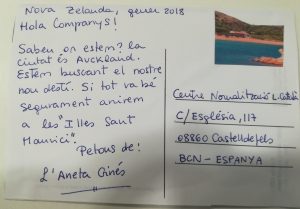 Nova Zelanda, gener 2018
Hola Companys!
Sabeu on estem? la
ciutat és Auckland.
Estem buscant el nostre
nou destí. Si tot va bé
segurament anirem
a les "Illes Sant
Maurici".
Petons de:
L'Aneta Ginés
Centre Normalització L. Català
C/ Església, 117
08860 Castelldefels
BCN - ESPANYA